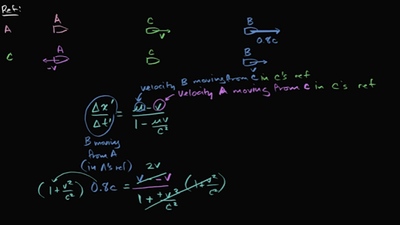 Ref:
A A C B
v 0.8c
C A C B
-v v
velocity B moving from C in C's ref
velocity A moving from C in C's ref
Δx' / Δt' = u - v / 1 - uv/c²
B moving
from A
(in A's ref)
2v
(1 + v²/c²) 0.8c = v - -v / 1 + +v²/c² (1 + v²/c²)